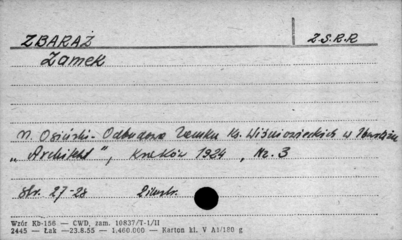 ZBARAŻ Z.S.R.R
Zamek
Osiński - Odbudowa Zamku Ks. Wiśniowieckich w Zbarażu
„Architekt", Kraków 1924, Nr. 3
Str. 27-28 2 ilustr.
Wzór Kb-156 — CWD, zam. 10837/T-1/II
2445 — Łak —23.8.55 — 1.460.000 — Karton kl. V A1/180 g